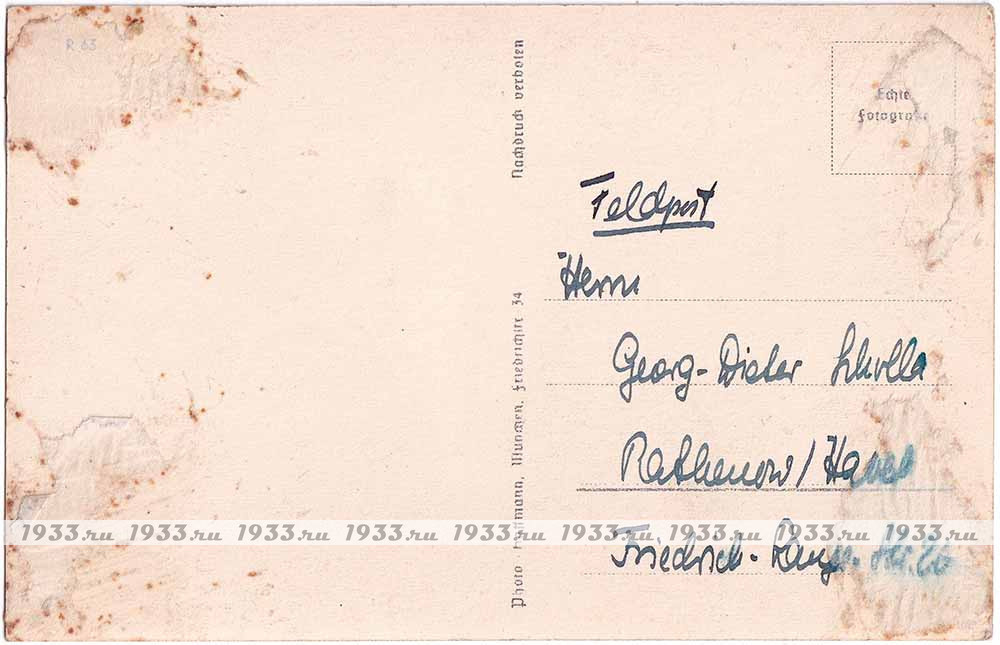 R 63
Echte
Fotografie
Nachdruck verboten
Photo Hoffmann, München, Friedrichstr. 34
Feldpost
Herrn
Georg-Dieter
Rathenow / Havel
Friedrich-
1933.ru 1933.ru 1933.ru 1933.ru 1933.ru 1933.ru 1933.ru 1933.ru 1933.ru